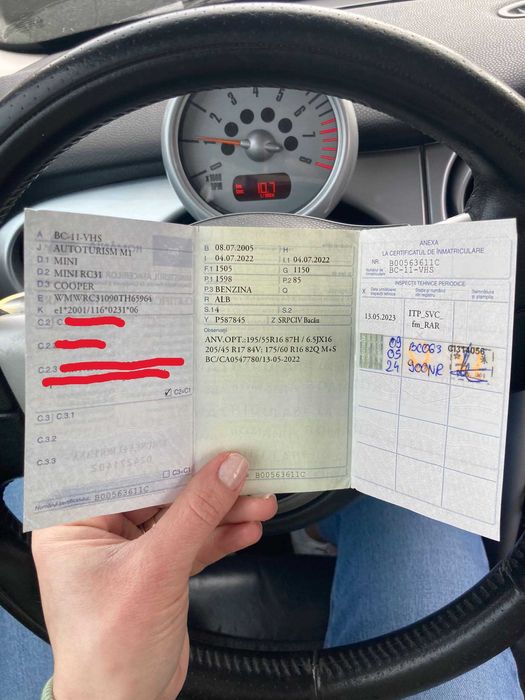 1 2 3 4 5 6 7 8
x1000
RPM
10.7
A BC-11-VHS
J AUTOTURISM M1
D.1 MINI
D.2 MINI RC31
D.3 COOPER
E WMWRC31090TH65964
K e1*2001/116*0231*06
C.2
C.2.
C.2.3
C2=C1
C.3 C.3.1
C.3.2
C.3.3
C3=C1
Numărul certificatului: B00563611C
B 08.07.2005 H
I 04.07.2022 I.1 04.07.2022
F.1 1505 G 1150
P.1 1598 P.2 85
P.3 BENZINA Q
R ALB
S.1 4 S.2
Y P587845 Z SRPCIV Bacău
Observații
ANV.OPT.:195/55R16 87H / 6.5JX16
205/45 R17 84V; 175/60 R16 82Q M+S
BC/CA0547780/13-05-2022
B00563611C
ANEXA
LA CERTIFICATUL DE ÎNMATRICULARE
NR. B00563611C
Numărul de înmatriculare BC-11-VHS
INSPECȚII TEHNICE PERIODICE
X Data următoarei inspecții tehnice
Stația și numărul din registru
Semnătura și ștampila
13.05.2023 ITP_SVC_
fm_RAR
09 BC063
05 900NR
24